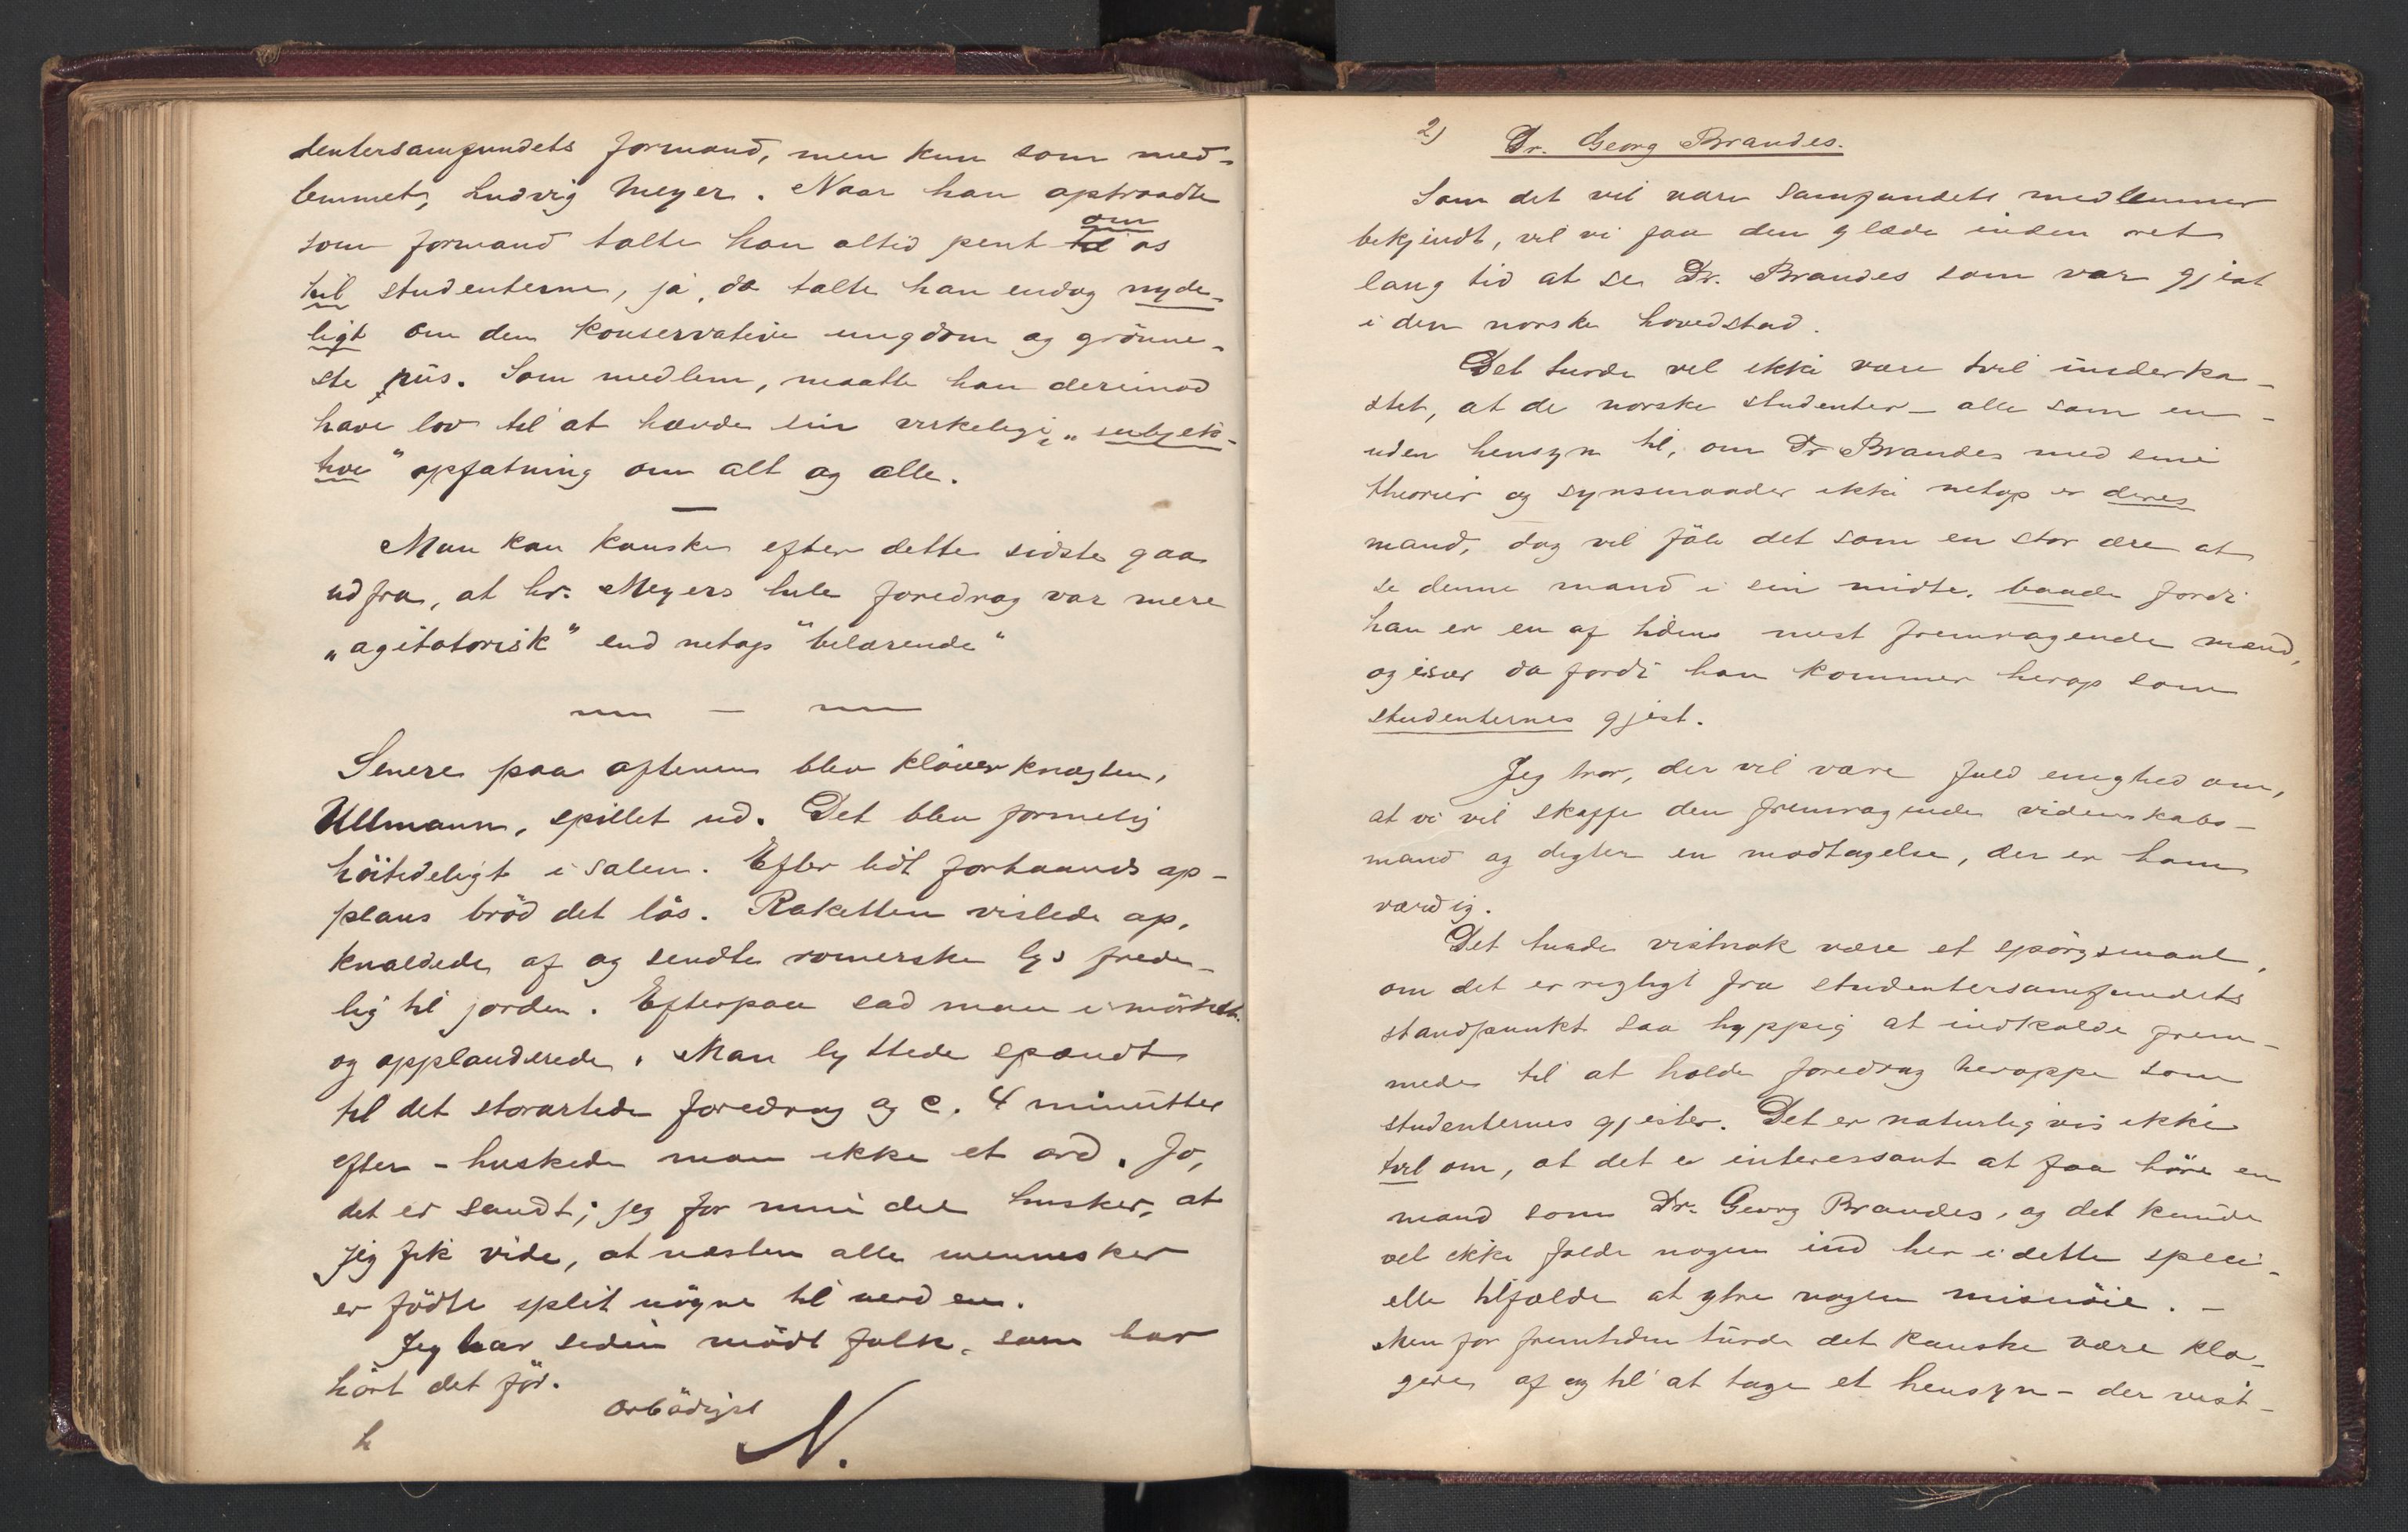 dentersamfundets formand, men kun som med-
lemmet, Ludvig Meyer. Naar han optraadte
som formand talte han altid pent til om os
til studenterne, ja, da talte han endog nyde-
ligt om den konservative ungdom og grönne-
ste riis. Som medlem, maatte han derimod
have lov til at hævde sin virkelige, "subjek-
tive" opfatning om alt og alle.
—
Man kan kanske efter dette sidste gaa
ud fra, at hr. Meyers hele foredrag var mere
"agitatorisk" end netop "belærende"
—
Senere paa aftenen blev klöverknægten,
Ullmann, spillet ud. Det blev formelig
höitideligt i salen. Efter lidt forhaands ap-
plaus bröd det lös. Raketten vislede op,
knaldede af og sendte romerske lys frede-
lig til jorden. Efterpaa sad man i mörket
og applauderede. Man lyttede spændt
til det storartede foredrag og c. 4 minutter
efter - huskede man ikke et ord. Jo,
det er sandt; jeg for min del husker, at
jeg fik vide, at næsten alle mennesker
er födte split nögne til verden.
Jeg har siden mödt folk, som har
hört det för.
Ærbödigst
N.
h
2) Dr. Georg Brandes.
Som det vil være samfundets medlemmer
bekjendt, vil vi faa den glæde inden ret
lang tid at se Dr. Brandes som vor gjest
i den norske hovedstad.
Det turde vel ikke være tvil underka-
stet, at de norske studenter - alle som en -
uden hensyn til, om Dr Brandes med sine
theorier og synsmaader ikke netop er deres
mand, dog vil föle det som en stor ære at
se denne mand i sin midte, baade fordi
han er en af tidens mest fremragende mænd,
og især da fordi han kommer herop som
studenternes gjest.
Jeg tror, der vil være fuld enighed om,
at vi vil skaffe den fremragende videnskabs-
mand og digter en modtagelse, der er ham
værdig.
Det turde vistnok være et spörgsmaal,
om det er rigtigt fra studentersamfundets
standpunkt saa hyppig at indkalde frem-
mede til at holde foredrag heroppe som
studenternes gjester. Det er naturligvis ikke
tvil om, at det er interessant at faa höre en
mand som Dr. Georg Brandes, og det kunde
vel ikke falde nogen ind her i dette speci-
elle tilfælde at ytre nogen misnöie. -
Men for fremtiden turde det kanske være kla-
gere af og til at tage et hensyn - der vist-